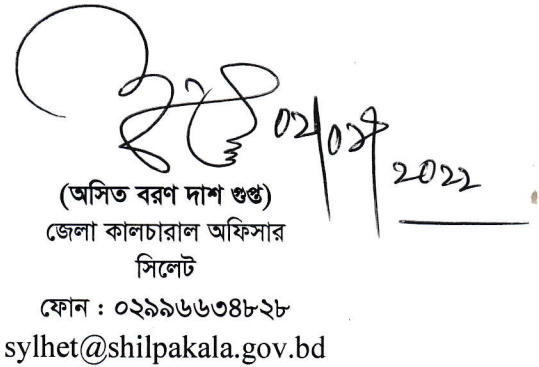 ০২/০৯/২০২২
(অসিত বরণ দাশ গুপ্ত)
জেলা কালচারাল অফিসার
সিলেট
ফোন : ০২৯৯৬৬৩৪৮২৮
sylhet@shilpakala.gov.bd